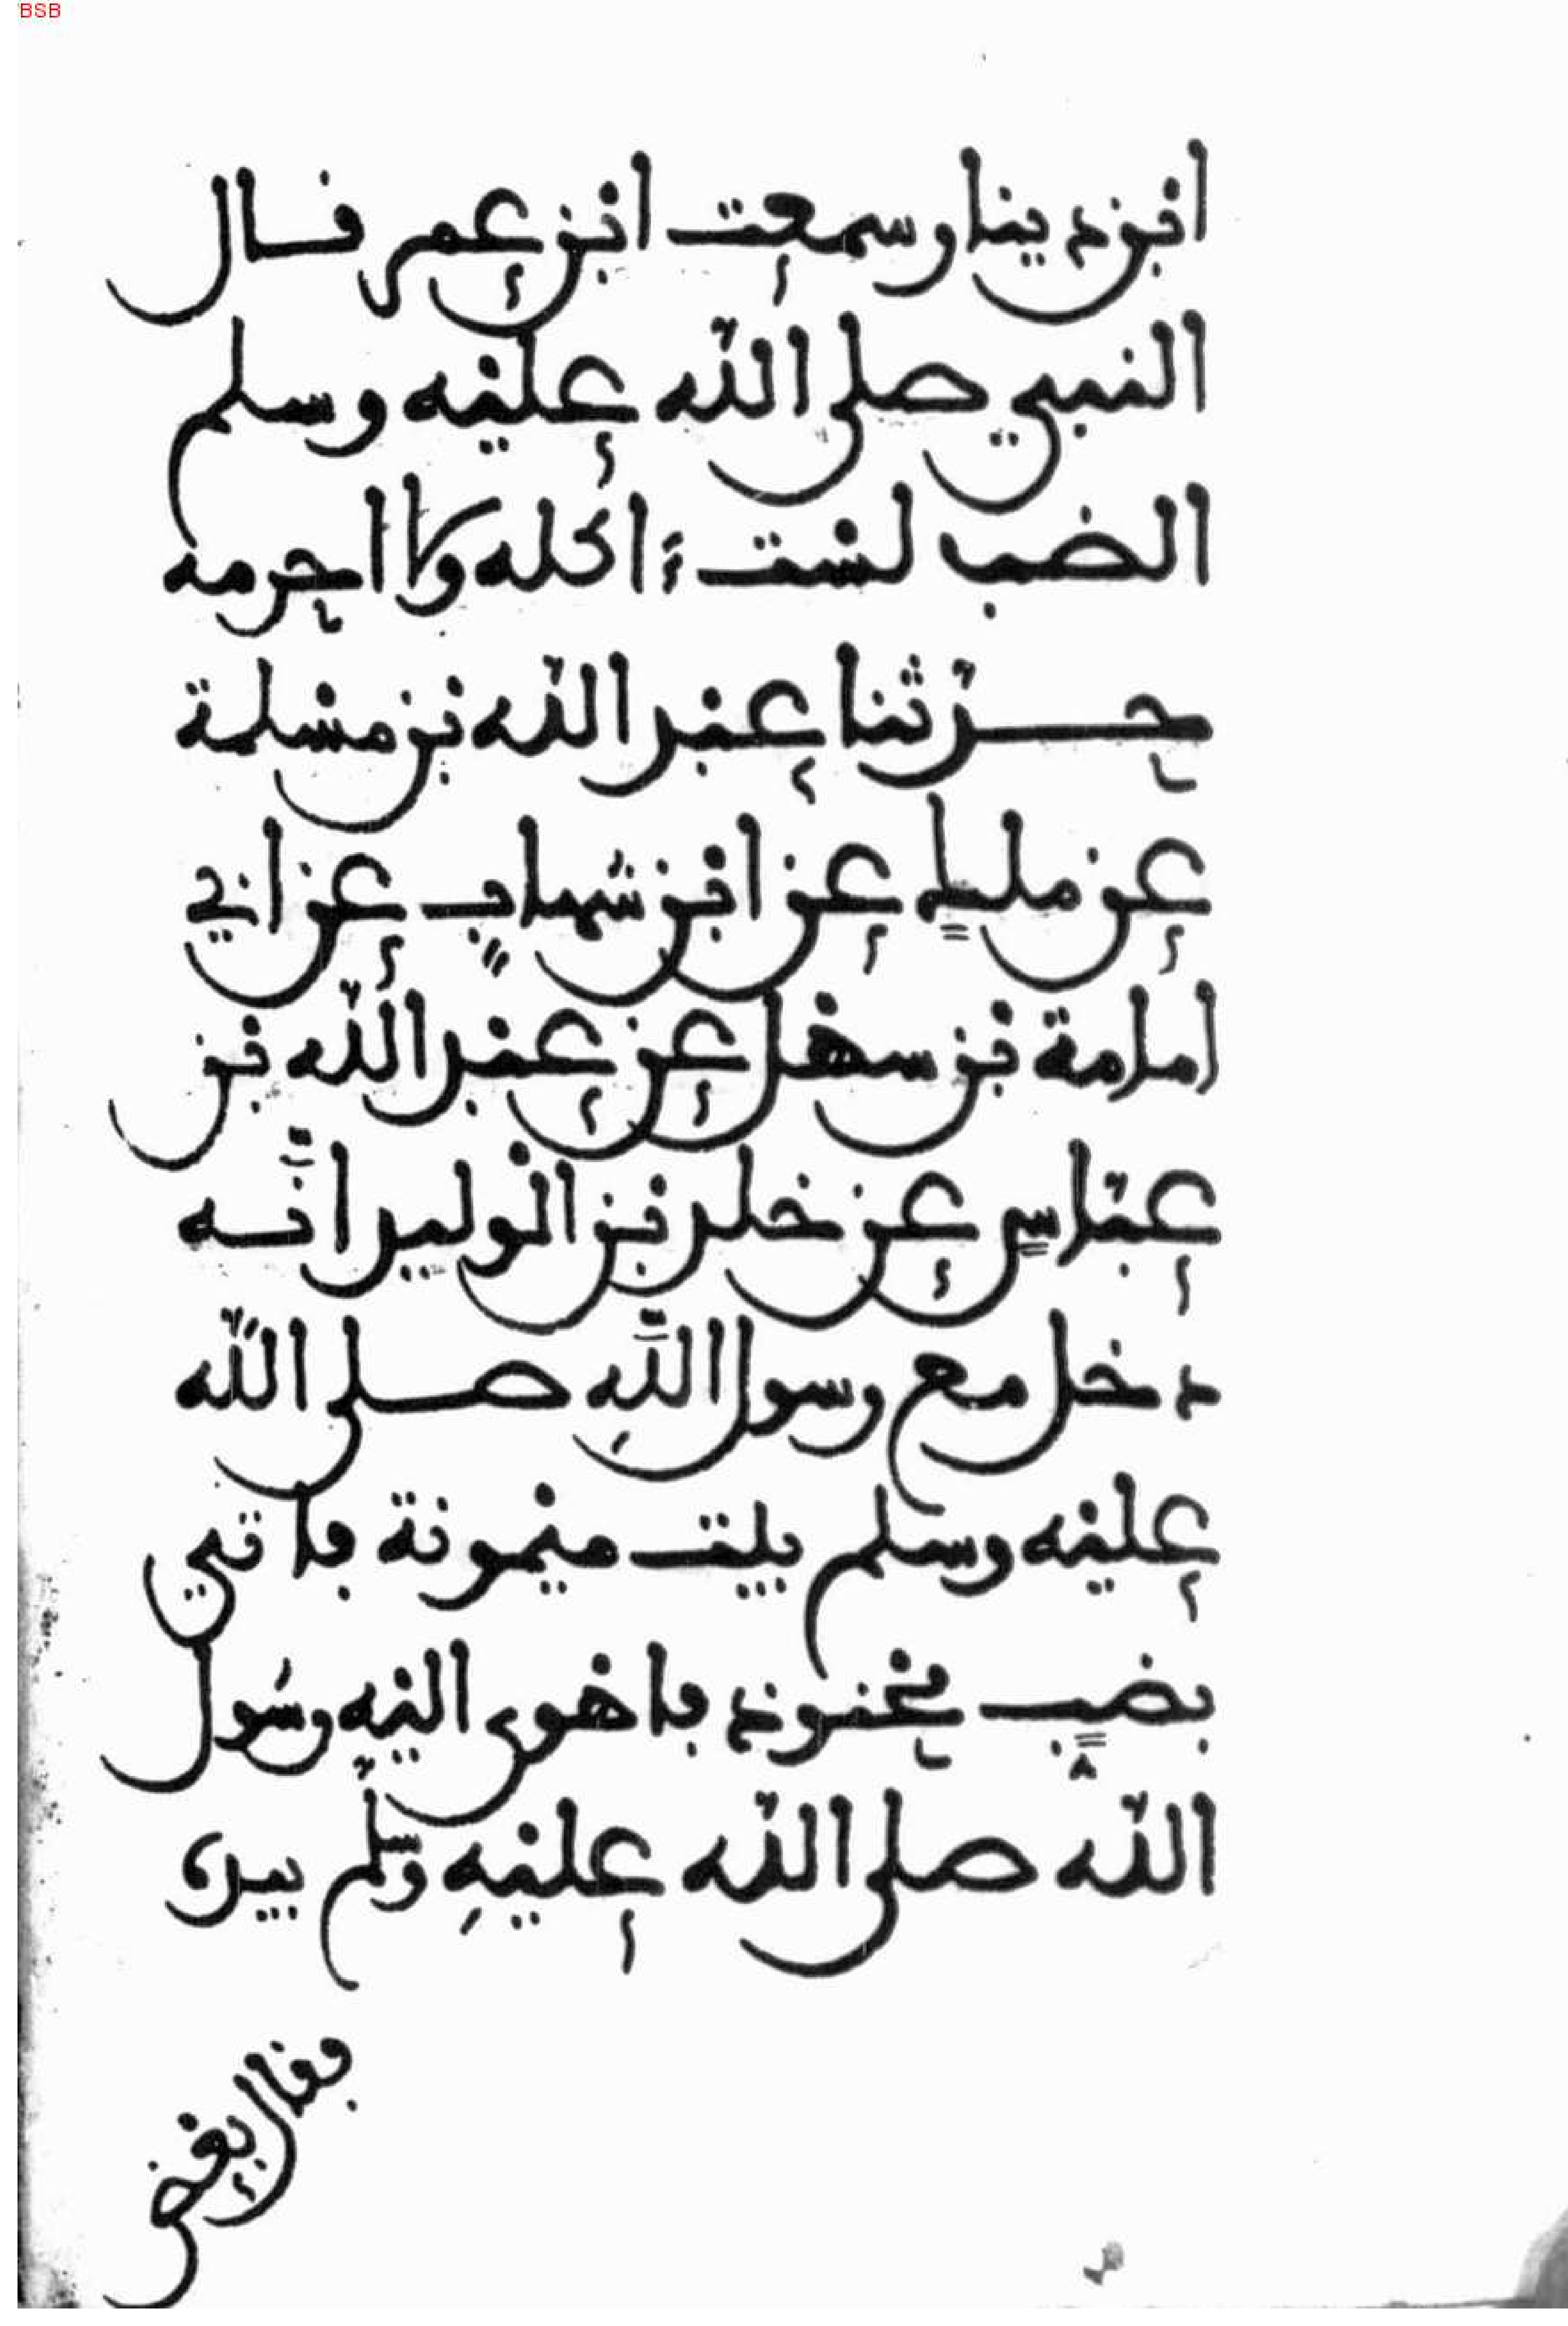 BSB
ابن دينار سمعت ابن عمر قال
النبي صلى الله عليه وسلم
الضب لست ءاكله ولا احرمه
حدثنا عبد الله بن مسلمة
عن ملك عن ابن شهاب عن ابي
امامة بن سهل عن عبد الله بن
عباس عن خلد بن الوليد انه
دخل مع رسول الله صلى الله
عليه وسلم بيت ميمونة فاتي
بضب محنوذ فاهوى اليه رسول
الله صلى الله عليه وسلم بيده
فقال بعض